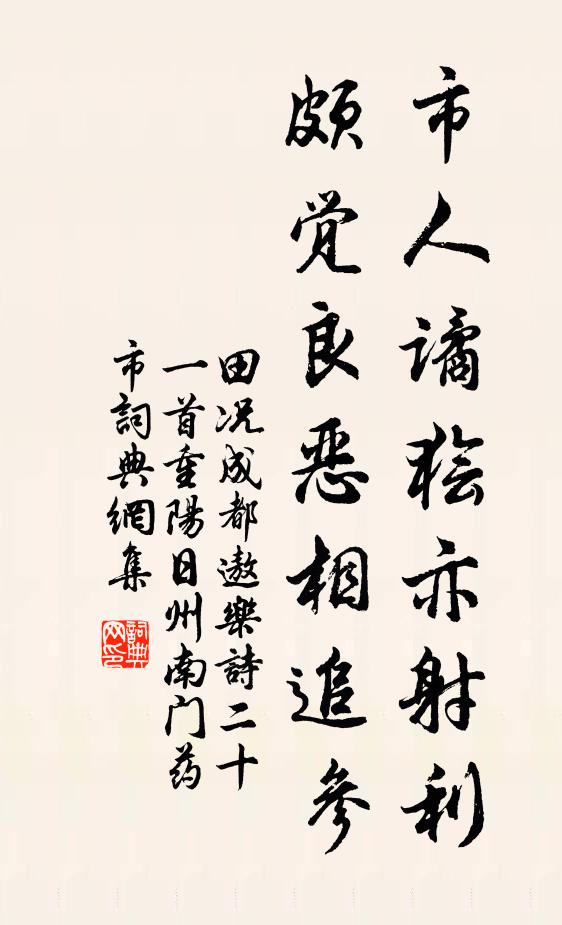 市人譎狯亦射利
颇觉良恶相追参
田况成都遨樂詩二十
一首重陽日州南门药
市詞典網集
詞典网印